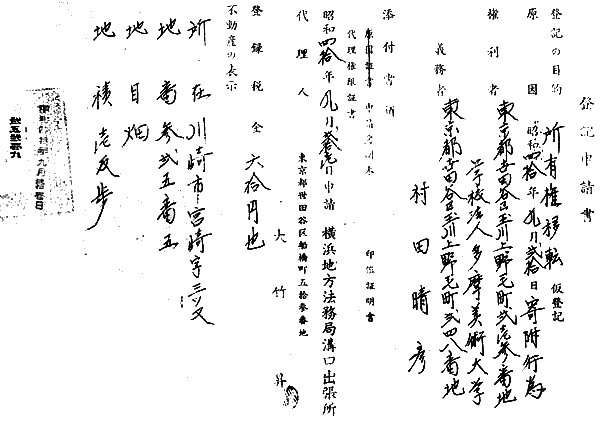 登記申請書
登記の目的 所有権移転 仮登記
原因 昭和四拾年九月弐拾日寄附行為
権利者 東京都世田谷区玉川上野毛町弐壱参番地
学校法人多摩美術大学
義務者 東京都世田谷区玉川上野毛町弐四八番地
村田晴彦
添付書類
申請書副本 印鑑証明書
代理権限証書
昭和四拾年九月 日申請 横浜地方法務局溝口出張所
代理人 東京都世田谷区船橋町五拾参番地
大竹
登録税 金六拾円也
不動産の表示
所在 川崎市宮崎字三ツ又
地番 参弐五番五
地目 畑
地積 壱反歩